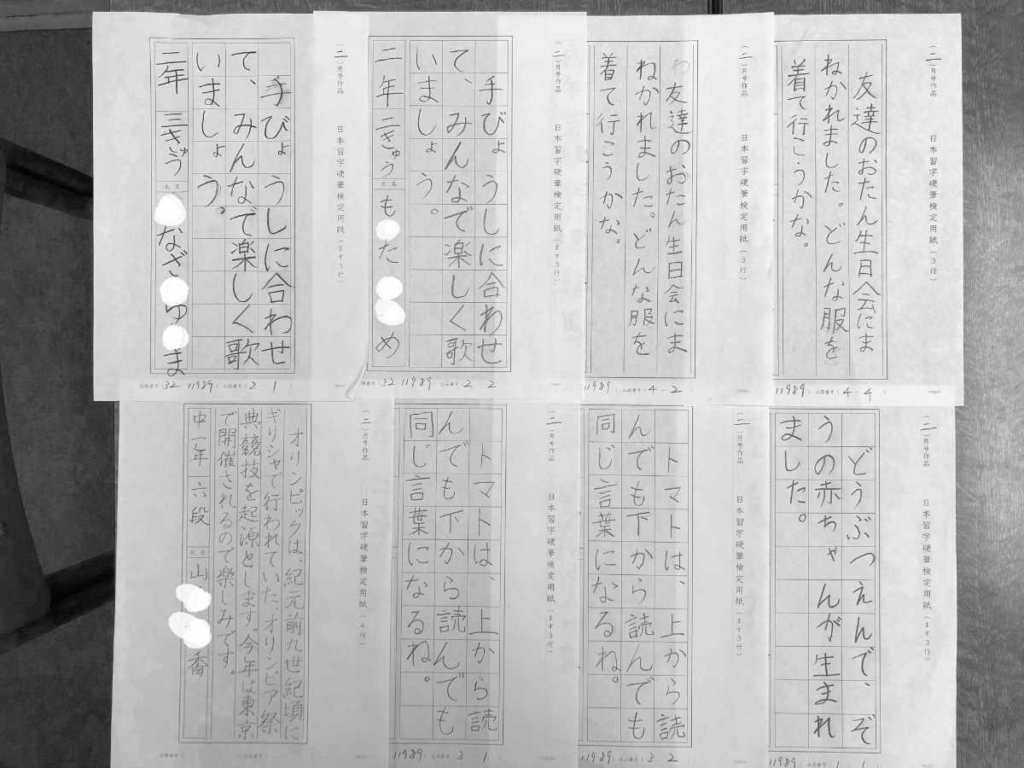 二月号作品
日本習字硬筆検定用紙（ます3行）
手びょうしに合わせ
て、みんなで楽しく歌
いましょう。
二年 三きゅう
なざ ゅ ま
32 11989 3 1
二月号作品
日本習字硬筆検定用紙（ます3行）
手びょうしに合わせ
て、みんなで楽しく歌
いましょう。
二年 二きゅう も た め
32 11989 2-2
二月号作品
日本習字硬筆検定用紙（3行）
友達のおたん生日会にま
ねかれました。どんな服を
着て行こうかな。
11989 4-2
二月号作品
日本習字硬筆検定用紙（3行）
友達のおたん生日会にま
ねかれました。どんな服を
着て行こうかな。
11989 4-4
二月号作品
日本習字硬筆検定用紙
オリンピックは、紀元前九世紀頃に
ギリシャで行われていた、オリンピア祭
典競技を起源とします。今年は東京
で開催されるので楽しみです。
中一年 六段 山 香
二月号作品
日本習字硬筆検定用紙（ます3行）
トマトは、上から読
んでも下から読んでも
同じ言葉になるね。
11989 3 1
二月号作品
日本習字硬筆検定用紙（ます3行）
トマトは、上から読
んでも下から読んでも
同じ言葉になるね。
11989 3-2
二月号作品
日本習字硬筆検定用紙（ます3行）
どうぶつえんで、ぞ
うの赤ちゃんが生まれ
ました。
11989 1-1